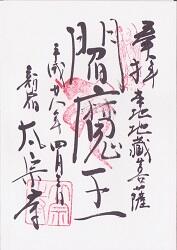 奉拝
本地地蔵菩薩
閻魔王
平成廿八年四月 日
新宿
太宗寺